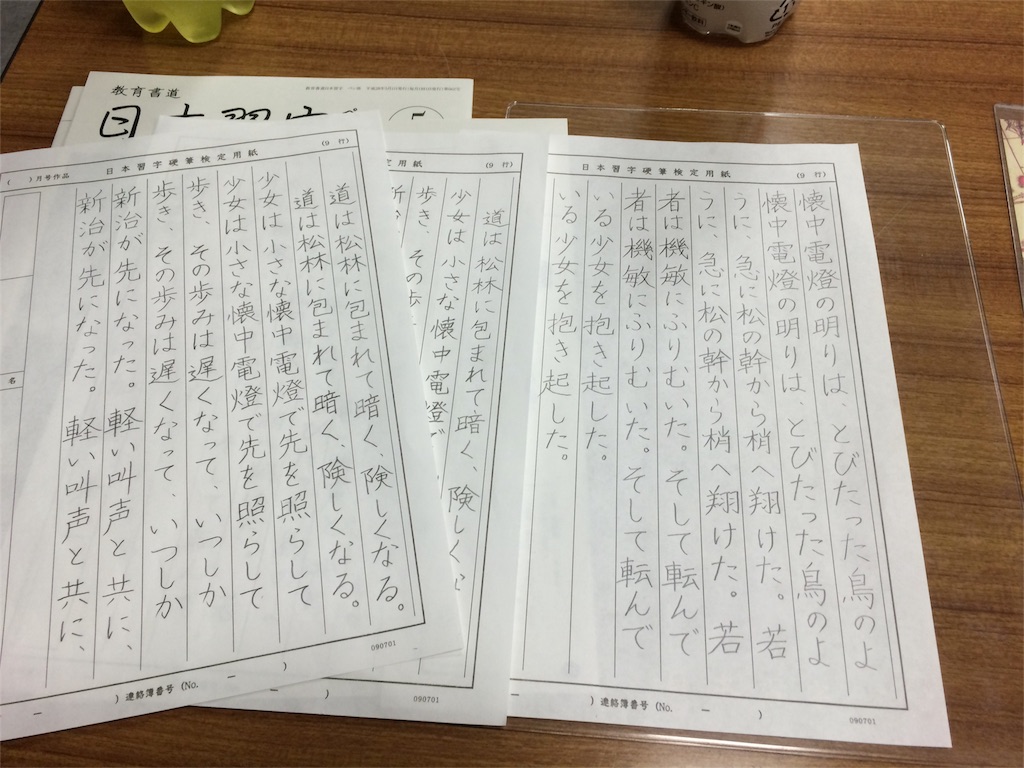 教育書道
日本習字
5
日本習字硬筆検定用紙
(9 行)
( )月号作品
道は松林に包まれて暗く、険しくなる。
道は松林に包まれて暗く、険しくなる。
少女は小さな懐中電燈で先を照らして
少女は小さな懐中電燈で先を照らして
歩き、その歩みは遅くなって、いつしか
歩き、その歩みは遅くなって、いつしか
新治が先になった。軽い叫声と共に、
新治が先になった。軽い叫声と共に、
名
090701
)連絡簿番号 (No. ー )
定用紙
(9 行)
道は松林に包まれて暗く、険しく
少女は小さな懐中電燈で
歩き、その
090701
日本習字硬筆検定用紙
(9 行)
懐中電燈の明りは、とびたった鳥のよ
懐中電燈の明りは、とびたった鳥のよ
うに、急に松の幹から梢へ翔けた。若
うに、急に松の幹から梢へ翔けた。若
者は機敏にふりむいた。そして転んで
者は機敏にふりむいた。そして転んで
いる少女を抱き起した。
いる少女を抱き起した。
090701
)連絡簿番号 (No. ー )